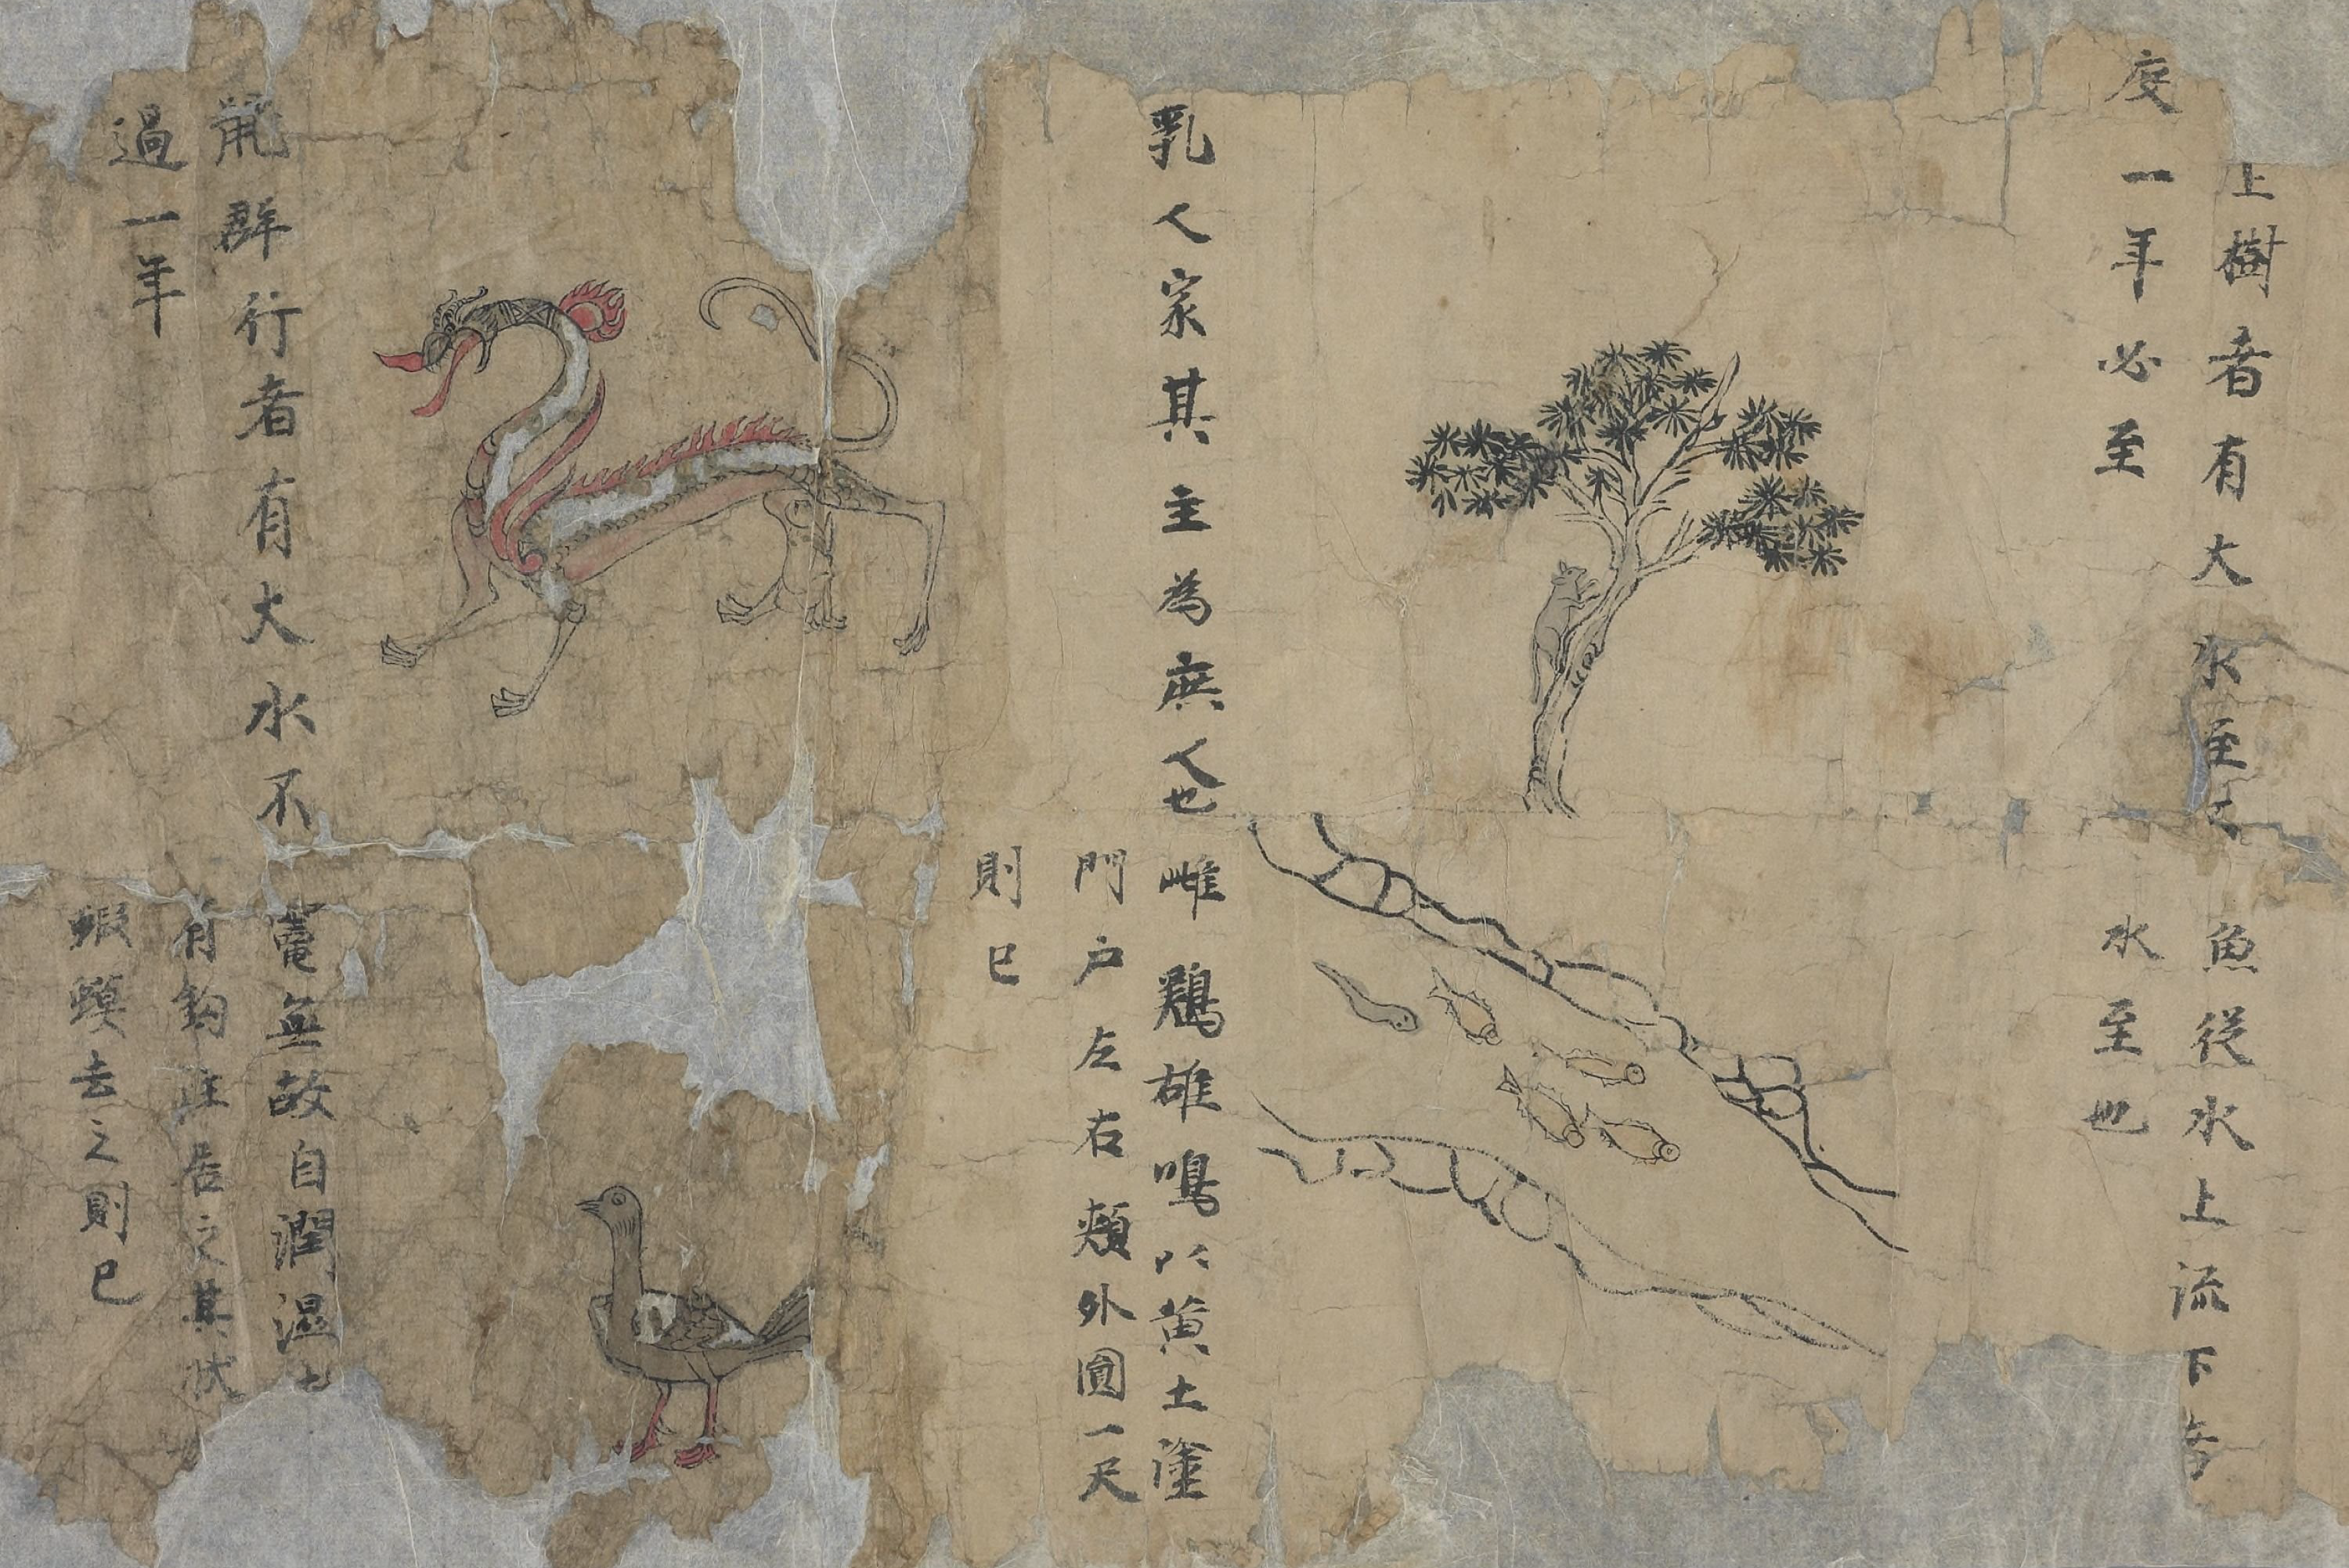 上樹者有大水至
度一年必至
乳人家其主為庶人也
鼠群行者有大水不
過一年
魚從水上流下者
水至也
雌鷄雄鳴以黄土塗
門户左右頰外圓一尺
則已
竈無故自潤溫
有鈎注居之其狀
蝦蟆去之則已